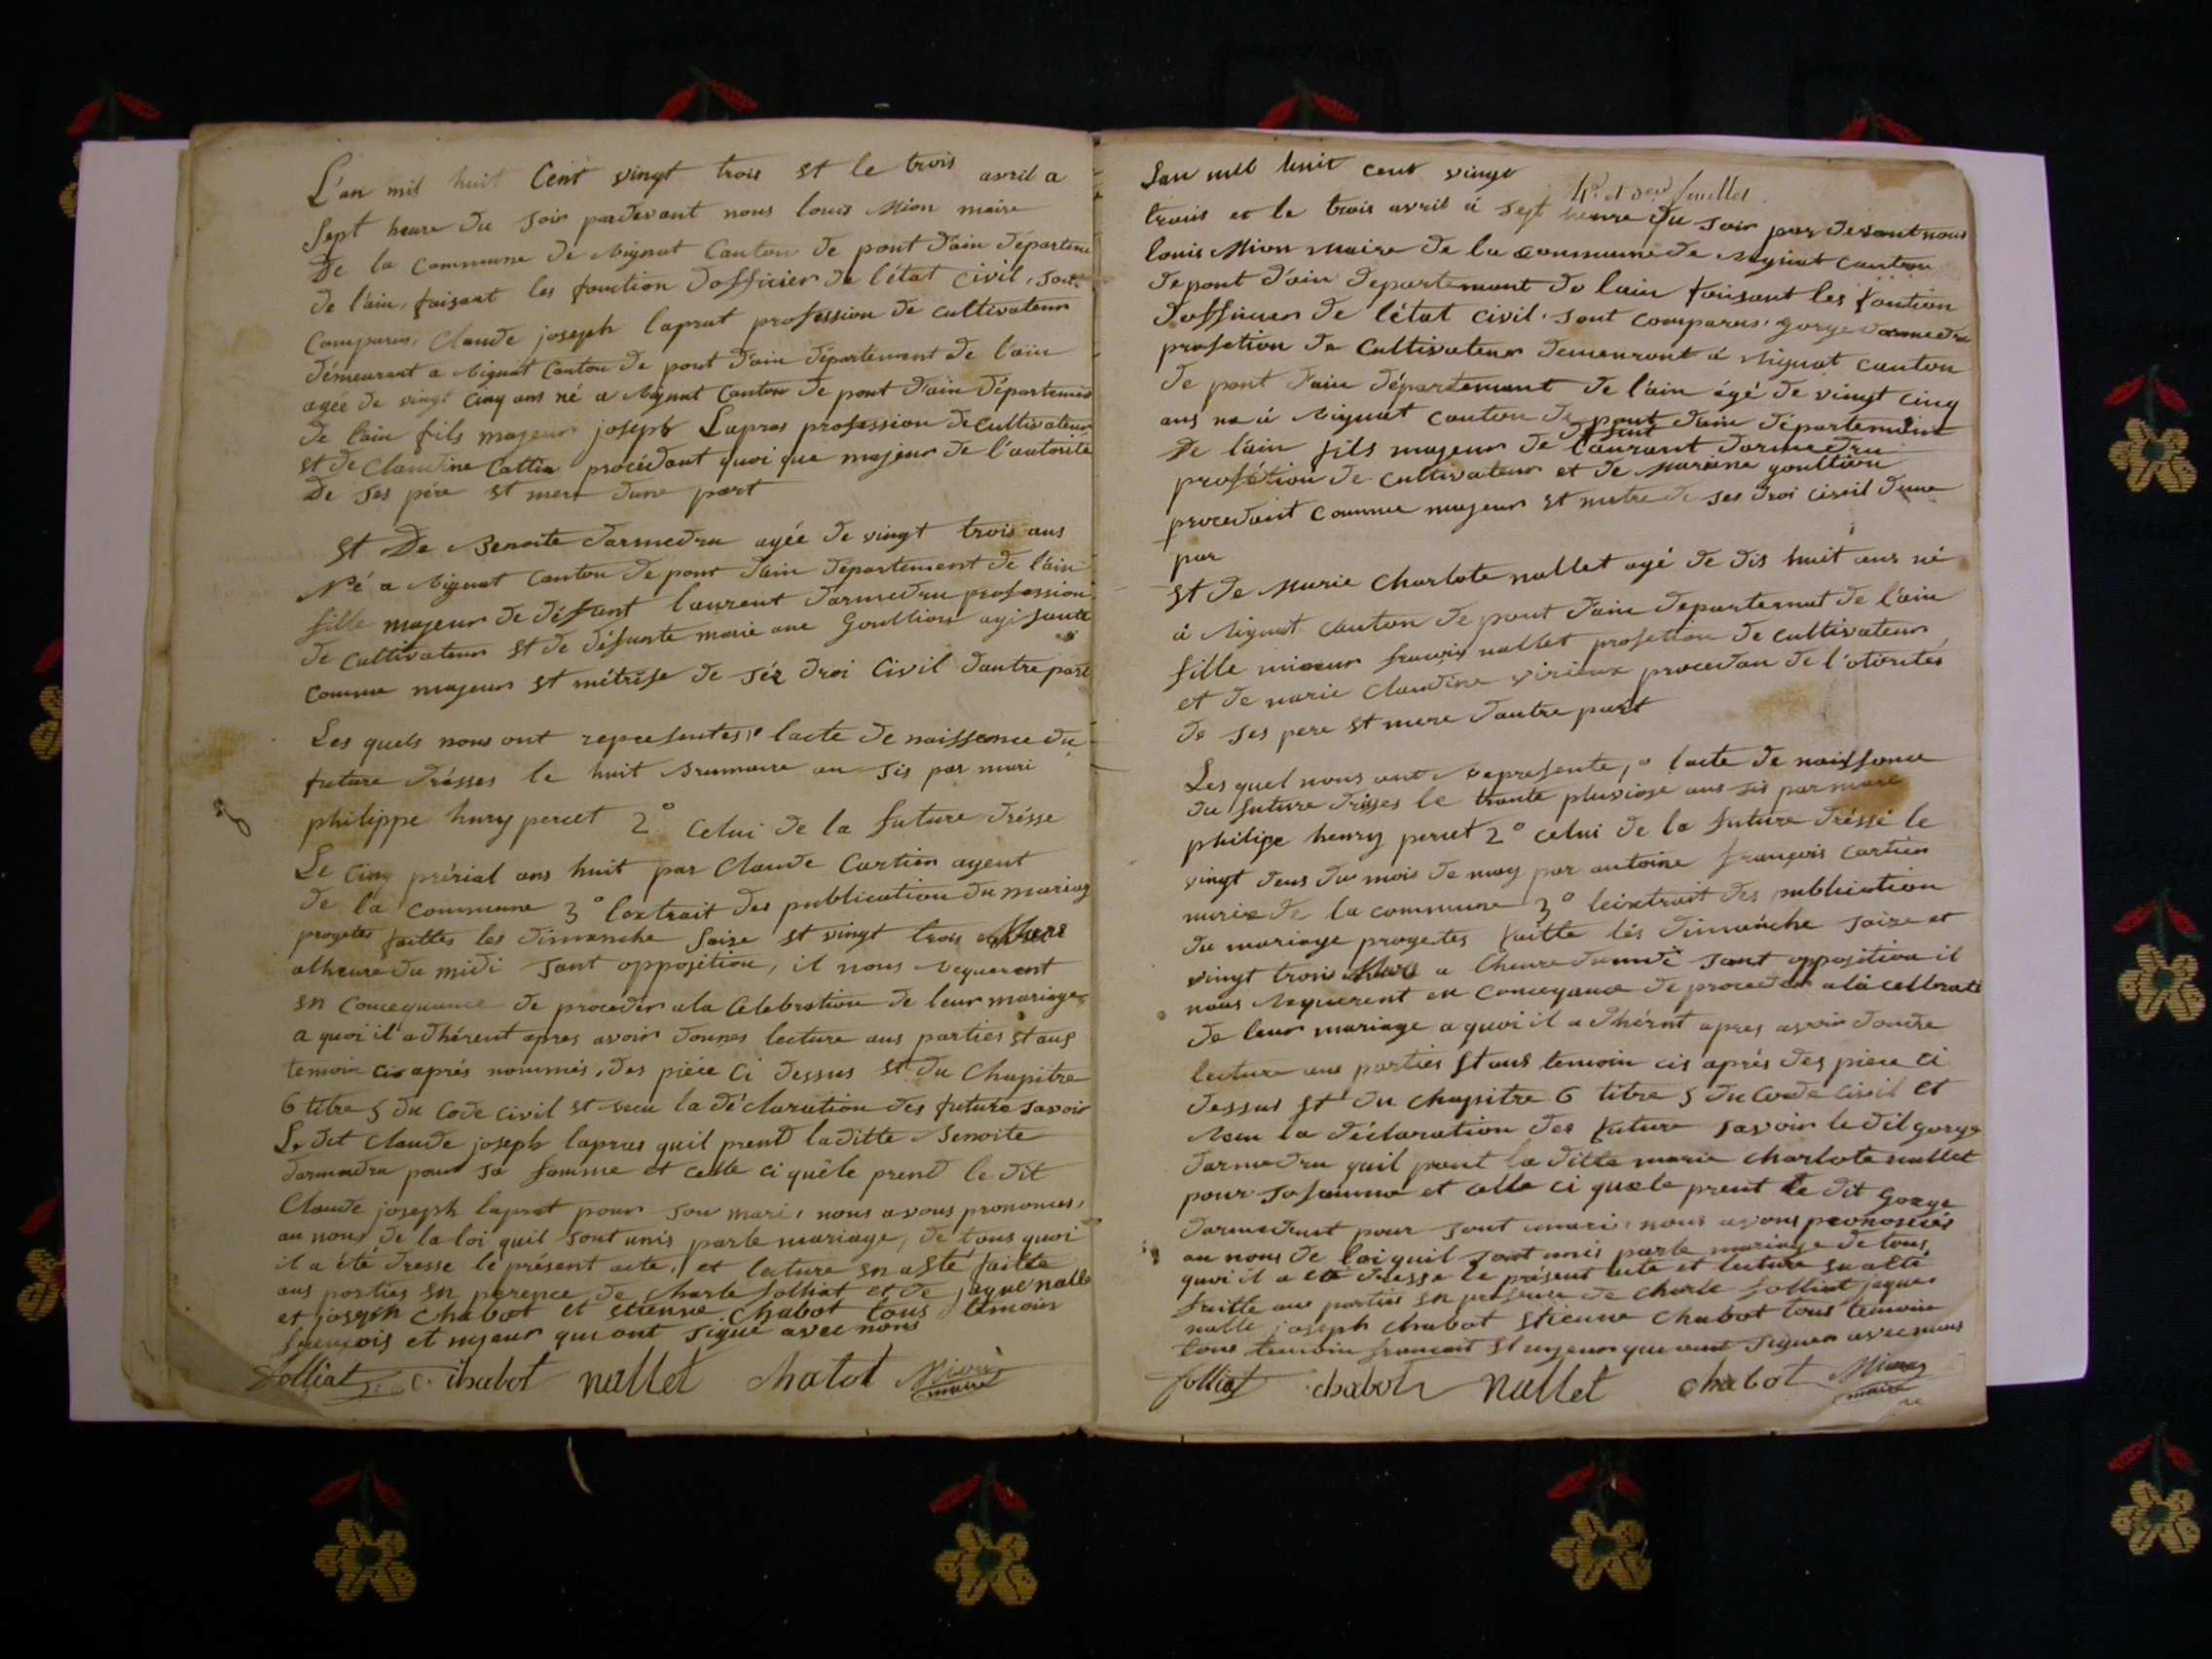 L'an mil huit Cent vingt trois et le trois avril a
Sept heure du soir pardevant nous louis Mion maire
De la Commune de Canton de pont d'ain départeme
de l'ain, faisant les fonction dofficier de l'état civil, sont
Comparus, Claude joseph laprat profession de cultivateur
démeurant a Canton de pont d'ain département de l'ain
agée de vingt cinq ans né a Canton de pont d'ain départemen
de l'ain fils majeur joseph Lapras profession de cultivateur
et de Claudine Cattin procédant quoi que majeur de l'autorité
de ses pére et mere dune part
et De Benoite darmedru agée de vingt trois ans
Né a Canton de pont d'ain département de l'ain
fille majeur de défunt laurent darmedru profession
de Cultivateur et de défunte marie ane Goultion agisante
comme majeur et métrése de séz droi Civil dautre part
Les quels nous ont representes, 1° lacte de naissance du
future drésses le huit Brumaire an sis par mari
philippe hury percet 2° celui de la future drésse
Le Cinq prérial ans huit par Claude Cartien agent
de la commune 3° lextrait des publication du mariag
progetes faittes les dimanche saize et vingt trois Mars
alheure du midi sant opposition, il nous requerent
en Concequance de proceder ala Celebration de leur mariages
a quoi il adhérent apres avoir donnes lecture aus parties et aus
temoin cis aprés nommés, des piéce ci dessus et du Chapitre
6 titre 5 du Code civil et recu la déclaration des future savoir
Le dit Claude joseph lapras quil prend laditte Benoite
darmedru pour sa famme et celle ci quéle prend le dit
Claude joseph laprat pour son mari, nous avons prononces,
au nom de la loi quil sont unis parle mariage, de tous quoi
il a été dresse le présent acte, et lecture en a été faitte
aus parties en de charle folliat et de jaque nalle
et joseph chabot et etienne chabot tous temoin
françois et mjeur qui ont signe avec nous
folliat c. chabot nallet chabot Mion
maire
Lan mil huit cent vingt
feuillet
trois et le trois avril á sept heure du soir par devant nous
louis Mion maire de la commune de canton
de pont d'ain departement de lain faisant les fontion
dofficier de létat civil, sont comparus, gorge darmedru
profetion de Cultivateur demeurant á canton
de pont d'ain département de l'ain égé de vingt cinq
ans ne á canton de pont d'ain département
de l'ain fils majeur de laurant darmedru
profétion de cultivateur et de mariane goultion
procedant comme majeur et metre de ses droi civil dune
par
et de Marie Charlote nallet agé de dis huit ans né
á canton de pont d'ain departemnt de l'ain
fille mineur francois nallet profetion de cultivateur
et de marie Claudine virieux procedan de l'otorites
de ses pere et mere dautre part
Les quel nous ont representé, 1° lacte de naissance
du future drisses le trante pluviose ans sis par marie
philipe henry percet 2° celui de la future dréssé le
vingt deus du mois de may par antoine françois cartien
maire de la commune 3° leixtrait des publication
du mariage progetes faitte lés dimanche saize et
vingt trois Mars a lheure du midi sant opposition il
nous requerent en concequance de proceder ala cellbrati
de leur mariage a quoi il adhérnt apres avoir donde
lecture aus parties et aus temoin cis aprés des piece ci
dessus et du chapitre 6 titre 5 du Code civil et
recu la déclaration des future savoir le dit gorge
darmedru quil prant la ditte marie charlote nallet
pour safamme et celle ci quele prent le dit gorge
darmedrut pour sont mari, nous avons prononcés
au nom de loi quil sont unis parle mariage de tous,
quoi il a été dresse le présent acte et lecture en a été
faitte aus parties en presence de charle folliat jaques
nalle joseph chabot etienne chabot tous temoin
tous temoin francois et mjeur que ont signer avec nous
folliat chabot Nallet chabot Mion
maire